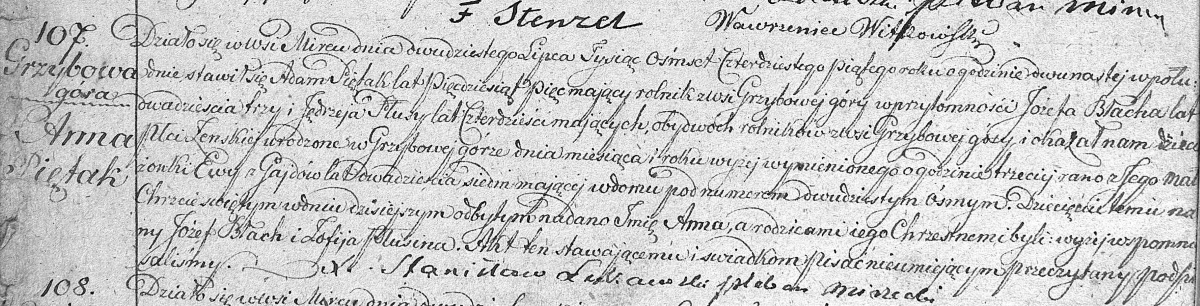 F Stenzel Wawrzeniec Witkowski
107.
Grzybowa
góra
Anna
Piętak
Działo się w wsi Mircu dnia dwudziestego Lipca Tysiąc Ośmset Czterdziestego piątego roku o godzinie dwunastej w połu
dnie stawił się Adam Piętak lat pięćdziesiąt pięć mający rolnik z wsi Grzybowej góry w przytomności Józefa Błacha lat
dwadzieścia trzy i Jędrzeja Plusy lat Czterdzieści mających, obydwóch rolników z wsi Grzybowej góry i okazał nam dziecię
płci żeńskiej urodzone w Grzybowej górze dnia miesiąca i roku wyżej wymienionego o godzinie trzeciej rano z Jego mał
żonki Ewy z Gajdów lat dwadzieścia siedm mającej w domu pod numerem dwudziestym ósmym. Dziecięciu temu na
Chrzcie świętym w dniu dzisiejszym odbytym nadano Imię Anna, a rodzicami jego Chrzestnemi byli: wyżej wspomnio
ny Józef Błach i Zofija Plusina. Akt ten stawającemu i świadkom pisać nieumiejącym przeczytany podpi
saliśmy. X. Stanisław pleban mirecki
108.
Działo się w wsi Mircu dnia